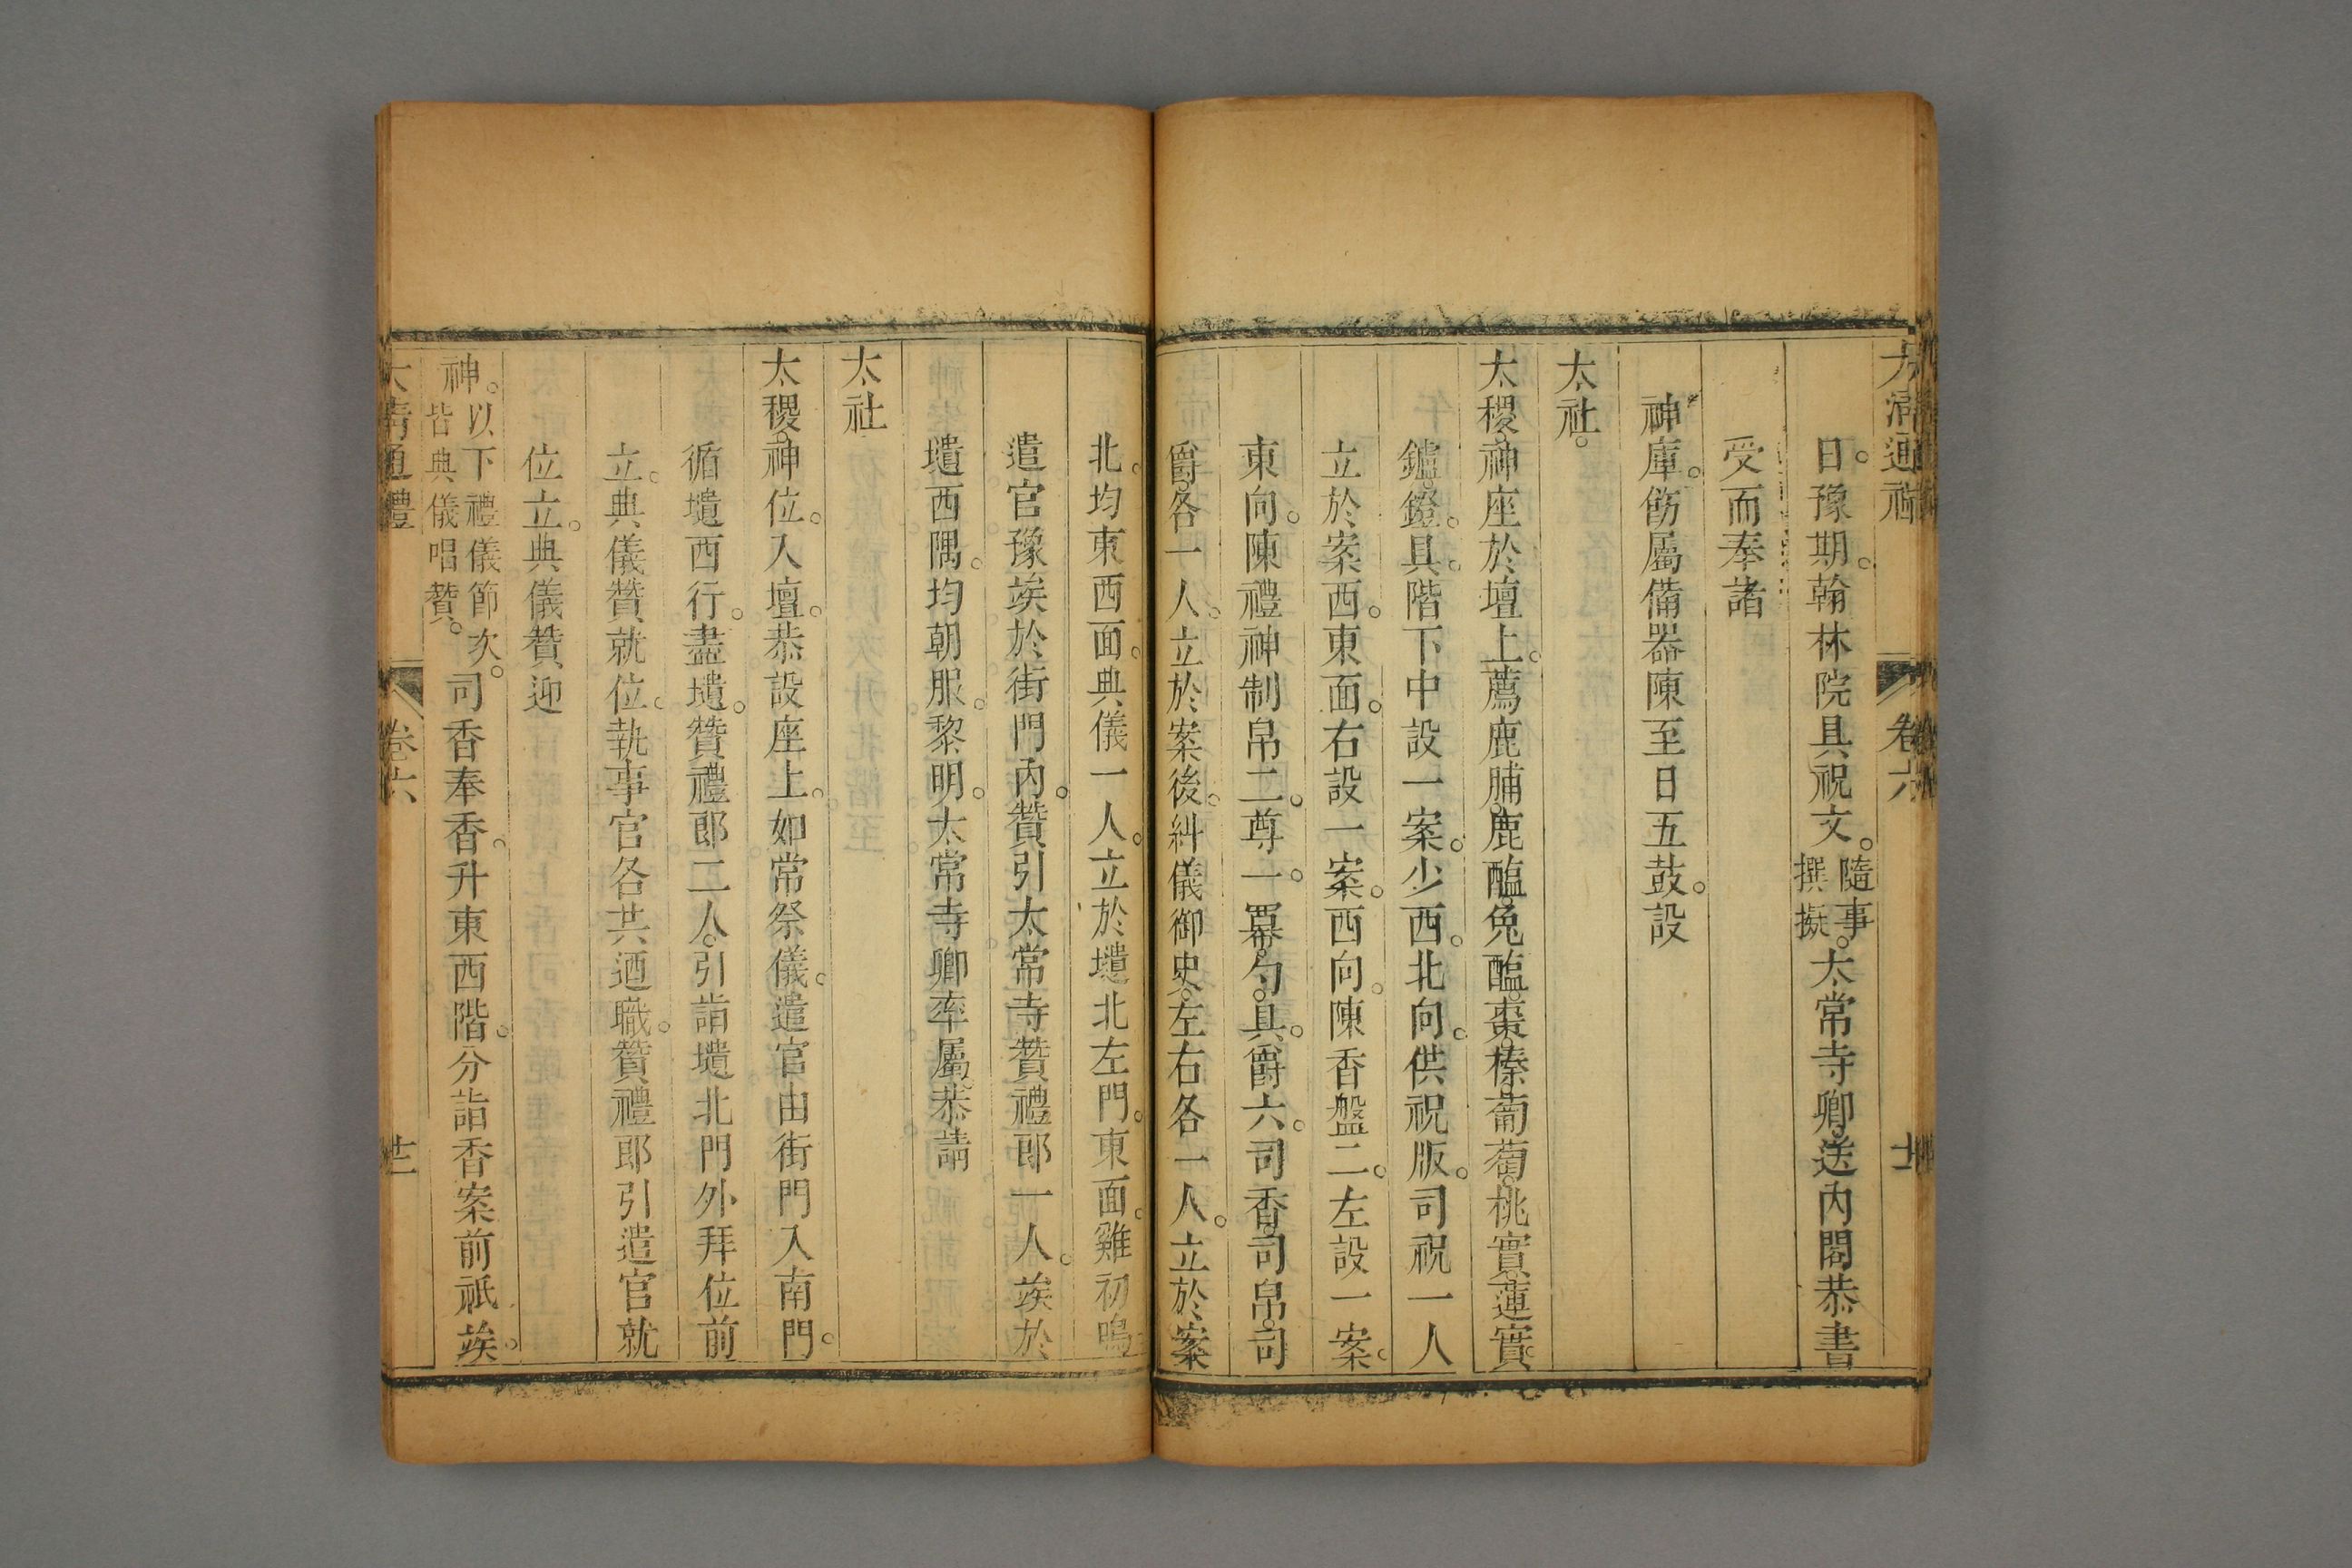 大清通禮 卷六
日。豫期。翰林院具祝文。隨事撰擬。太常寺卿送內閣恭書
受而奉諸
神庫。飭屬備器陳至日五鼓。設
太社。
太稷。神座於壇上。薦鹿脯。鹿醢。兔醢。棗。榛。葡萄。桃實。蓮實。
鑪。鐙。具。階下中設一案。少西。北向。供祝版。司祝一人
立於案西。東面。右設一案。西向。陳香盤二。左設一案。
東向。陳禮神制帛二。尊一。冪。勺。具。爵六。司香。司帛。司
爵。各一人。立於案後。糾儀御史。左右各一人。立於案
北。均東西面。典儀一人。立於壝北左門。東面。雞初鳴
遣官豫竢於街門內。贊引太常寺贊禮郎一人。竢於
壝西隅。均朝服。黎明。太常寺卿率屬。恭請
太社
太稷。神位。入壇。恭設座上。如常祭儀。遣官由街門入南門。
循壝西行。盡壝。贊禮郎二人。引詣壝北門外拜位前
立。典儀贊就位。執事官各共迺職。贊禮郎引遣官就
位立。典儀贊迎
神。以下禮儀節次。皆典儀唱贊。司香奉香。升東西階。分詣香案前祇竢。
大清通禮 卷六